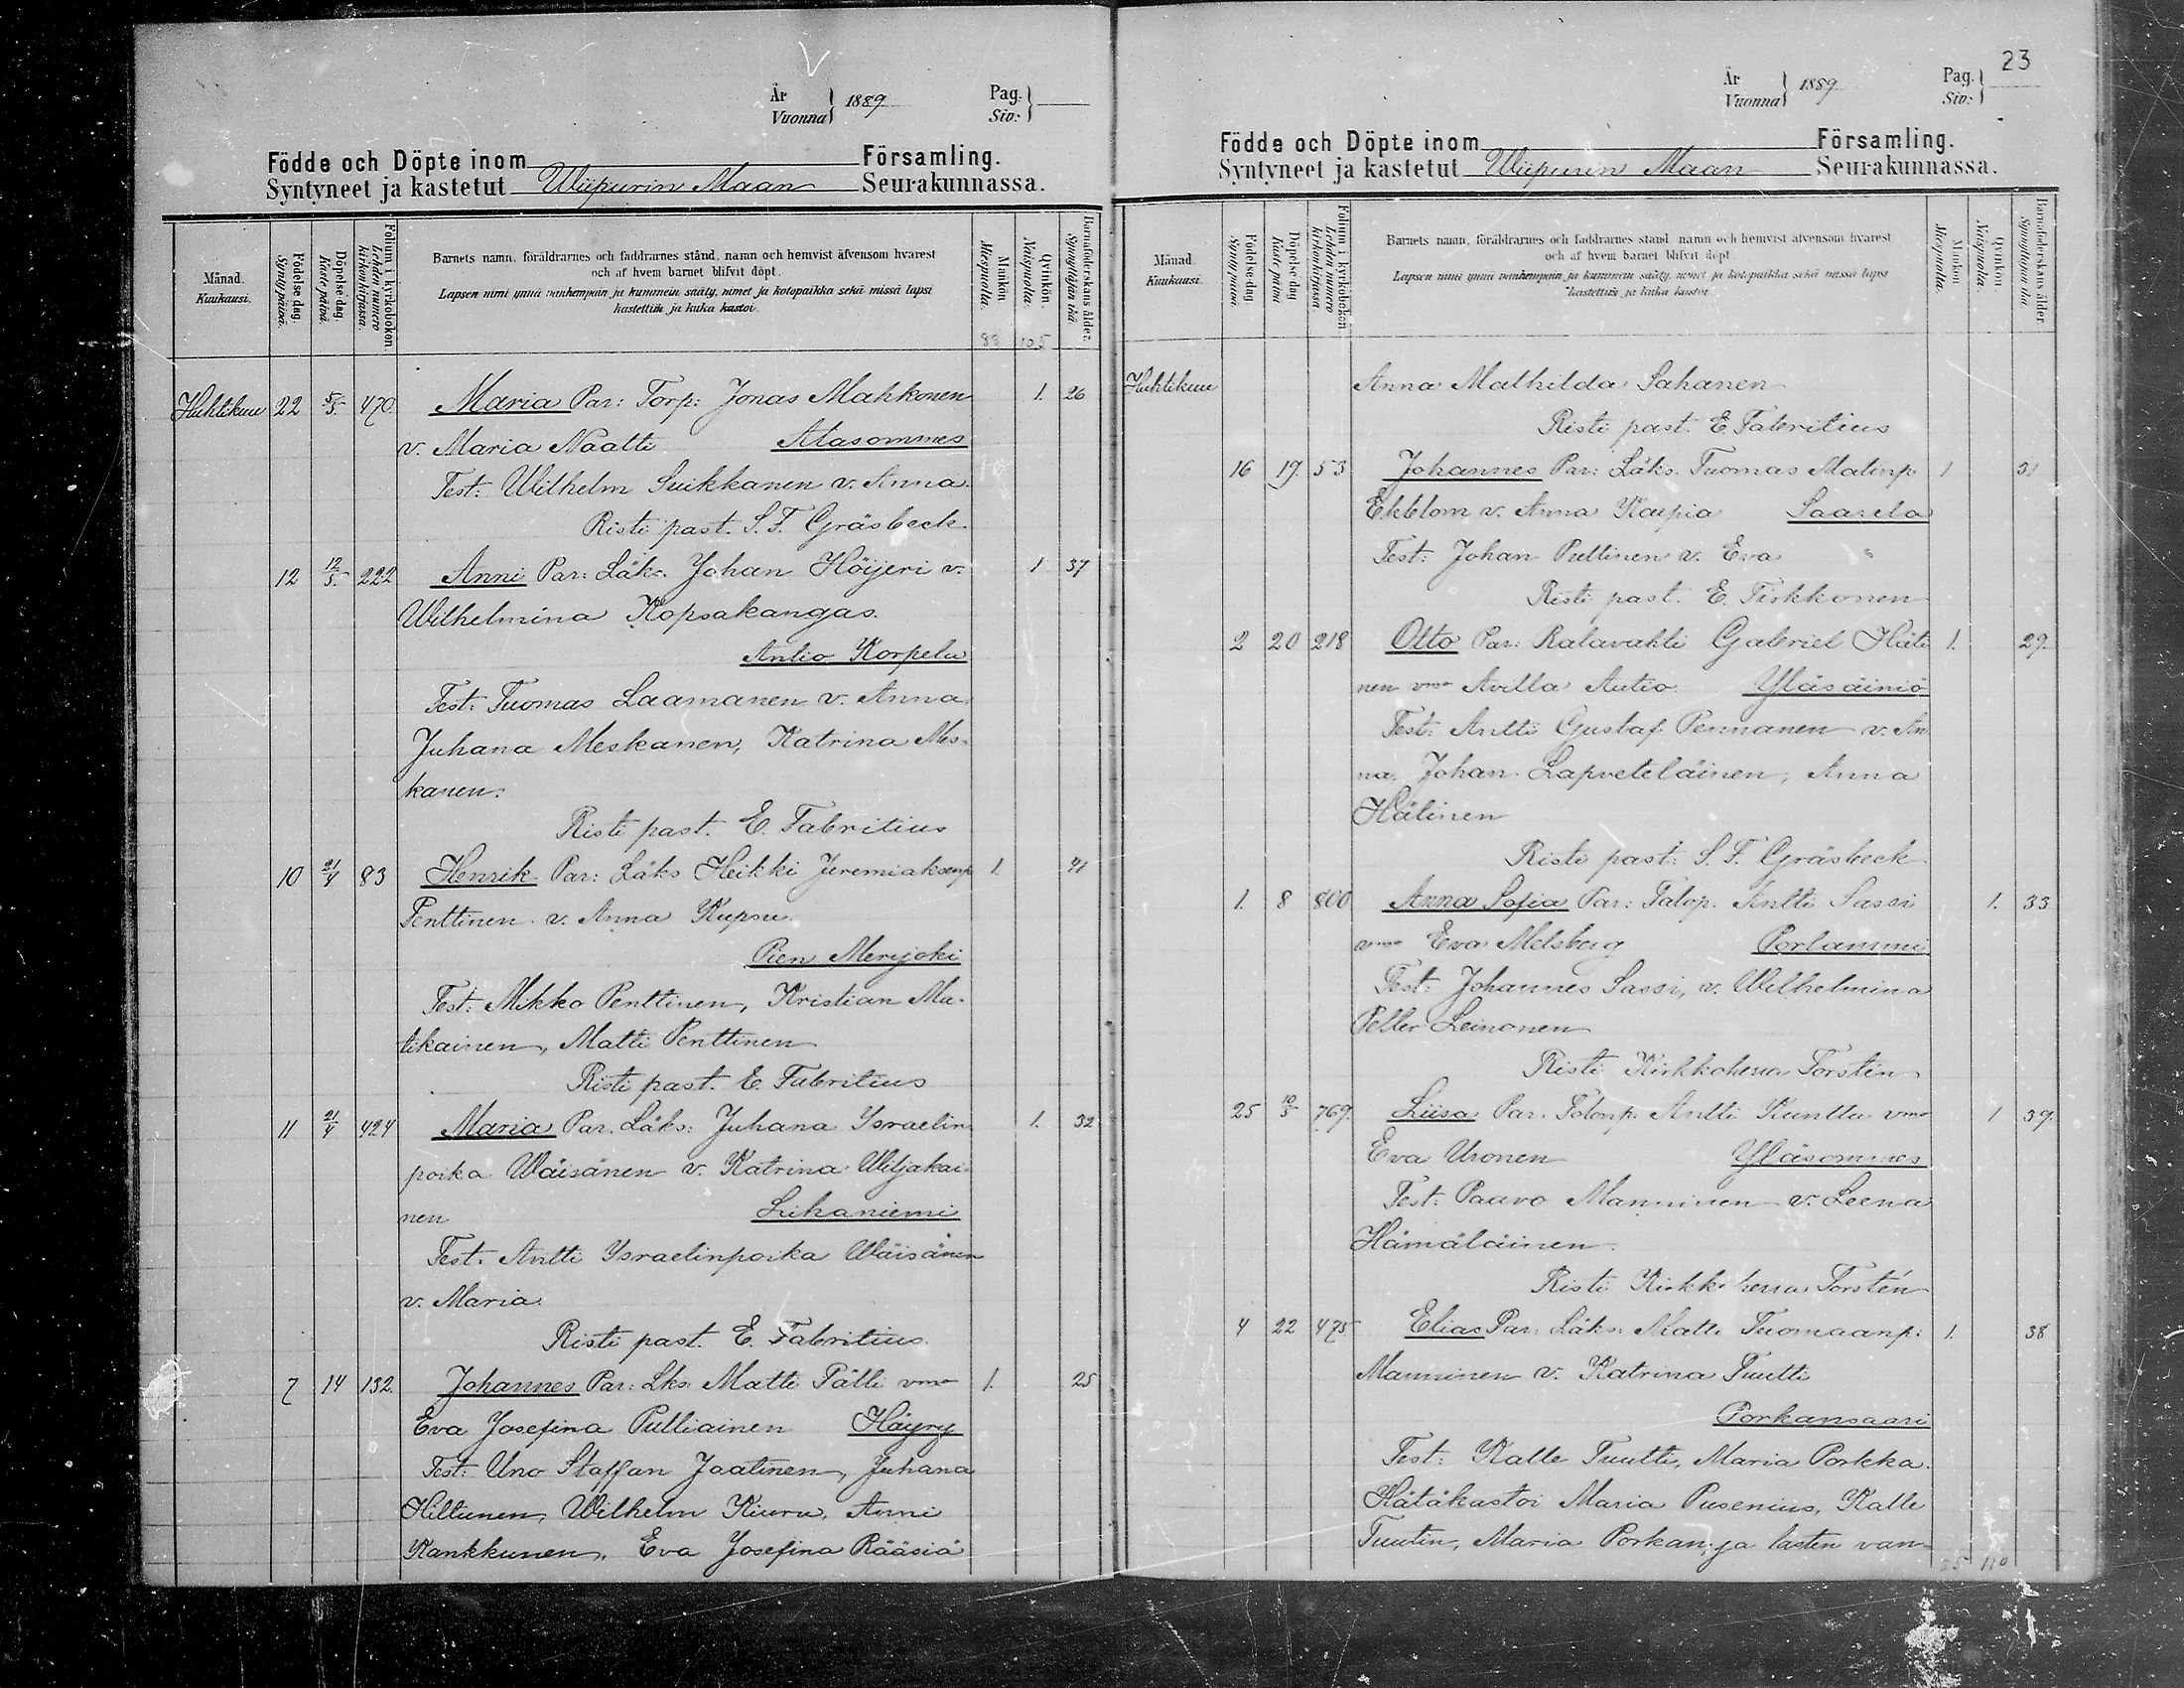 År
Vuonna } 1889. Pag.
Siv: }
Födde och Döpte inom Församling.
Syntyneet ja kastetut Wiipurin Maan Seurakunnassa.
Månad.
Kuukausi.
Födelse dag.
Synty päivä.
Döpelse dag.
Kaste päivä.
Folium i kyrkoboken.
Lehden numero kirkonkirjassa.
Barnets namn, föräldrarnes och faddrarnes stånd, namn och hemvist äfvensom hvarest
och af hvem barnet blifvit döpt.
Lapsen nimi ynnä vanhempain ja kummein sääty, nimet ja kotopaikka sekä missä lapsi
kastettiin ja kuka kastoi.
Mankön.
Miespuolia.
Qvinkön.
Naispuolia.
Barnaföderskans ålder.
Synnyttäjän ikä.
88 105
Huhtikuu 22 5/5 470. Maria Par: Torp: Jonas Mahkonen 1. 26
v. Maria Naatti Alasommes
Test: Wilhelm Suikkanen v. Anna.
Risti past. S. F. Gräsbeck.
12 12/5 222 Anni Par: Läks. Johan Höijeri v. 1 37
Wilhelmina Kopsakangas.
Antio Korpela
Test: Tuomas Laamanen v. Anna
Juhana Meskanen, Katrina Mes-
kanen.
Risti past. E. Fabritius
10 21/4 83 Henrik Par: Läks Heikki Jeremiaksenp 1. 41
Penttinen v. Anna Kupsu.
Pien Merijoki
Test: Mikko Penttinen, Kristian Mu-
tikainen, Matti Penttinen
Risti past. E. Fabritius
11 21/4 424 Maria Par. Läks: Juhana Israelin 1. 32
poika Wäisänen v. Katrina Wiljakai-
nen Lihaniemi
Test. Antti Israelinpoika Wäisänen
v. Maria.
Risti past. E. Fabritius.
7 14 132. Johannes Par: Lks. Matti Pälli vmo 1. 25
Eva Josefina Pulliainen Häyry
Test: Uno Staffan Jaatinen, Juhana
Hiltunen, Wilhelm Kiuru, Anni
Kankkunen, Eva Josefina Rääsiä
23
År
Vuonna } 1889. Pag.
Siv: }
Födde och Döpte inom Församling.
Syntyneet ja kastetut Wiipurin Maan Seurakunnassa.
Månad
Kuukausi.
Födelse dag
Synty päivä.
Döpelse dag
Kaste päivä
Folium i kyrkoboken
Lehden numero kirkonkirjassa.
Barnets namn, föräldrarnes och faddrarnes stånd, namn och hemvist äfvensom hvarest
och af hvem barnet blifvit döpt
Lapsen nimi ynnä vanhempain ja kummein sääty, nimet ja kotopaikka sekä missä lapsi
kastettiin ja kuka kastoi
Mankön
Miespuolia.
Qvinkön
Naispuolia.
Barnaföderskans ålder.
Synnyttäjän ikä
Huhtikuu Anna Mathilda Sahanen
Risti past. E. Fabritius
16 19. 53 Johannes Par: Läks. Tuomas Matinp. 1 31
Ekblom v. Anna Kaupia Saarela
Test: Johan Pullinen v. Eva
Risti past. E. Tirkkonen
2 20 218 Otto Par: Ratavahti Gabriel Häti 1. 29.
nen vmo Avilla Autio. Yläsäiniö
Test: Antti Gustaf Pennanen v. An
na. Johan Lapveteläinen, Anna
Hätinen
Risti past: S. F. Gräsbeck
1. 8 800 Anna Sofia Par: Talop. Antti Sassi 1. 33
vmo Eva Melsberg Porlammi
Test: Johannes Sassi, v. Wilhelmina
Petter Leinonen
Risti Kirkkoherra Forstén
25 10/5 769. Liisa Par. Talonp. Antti Kunttu vmo 1 39.
Eva Uronen Yläsommes
Test: Paavo Manninen v. Leena
Hämäläinen.
Risti Kirkkoherra Forstén
4 22 475 Elias Par: Läks: Matti Tuomaanp: 1. 38
Manninen v. Katrina Tuutti
Porkansaari
Test: Kalle Tuutti, Maria Porkka.
Hätäkastoi Maria Pusenius, Kalle
Tuutin, Maria Porkan, ja lasten van-
110